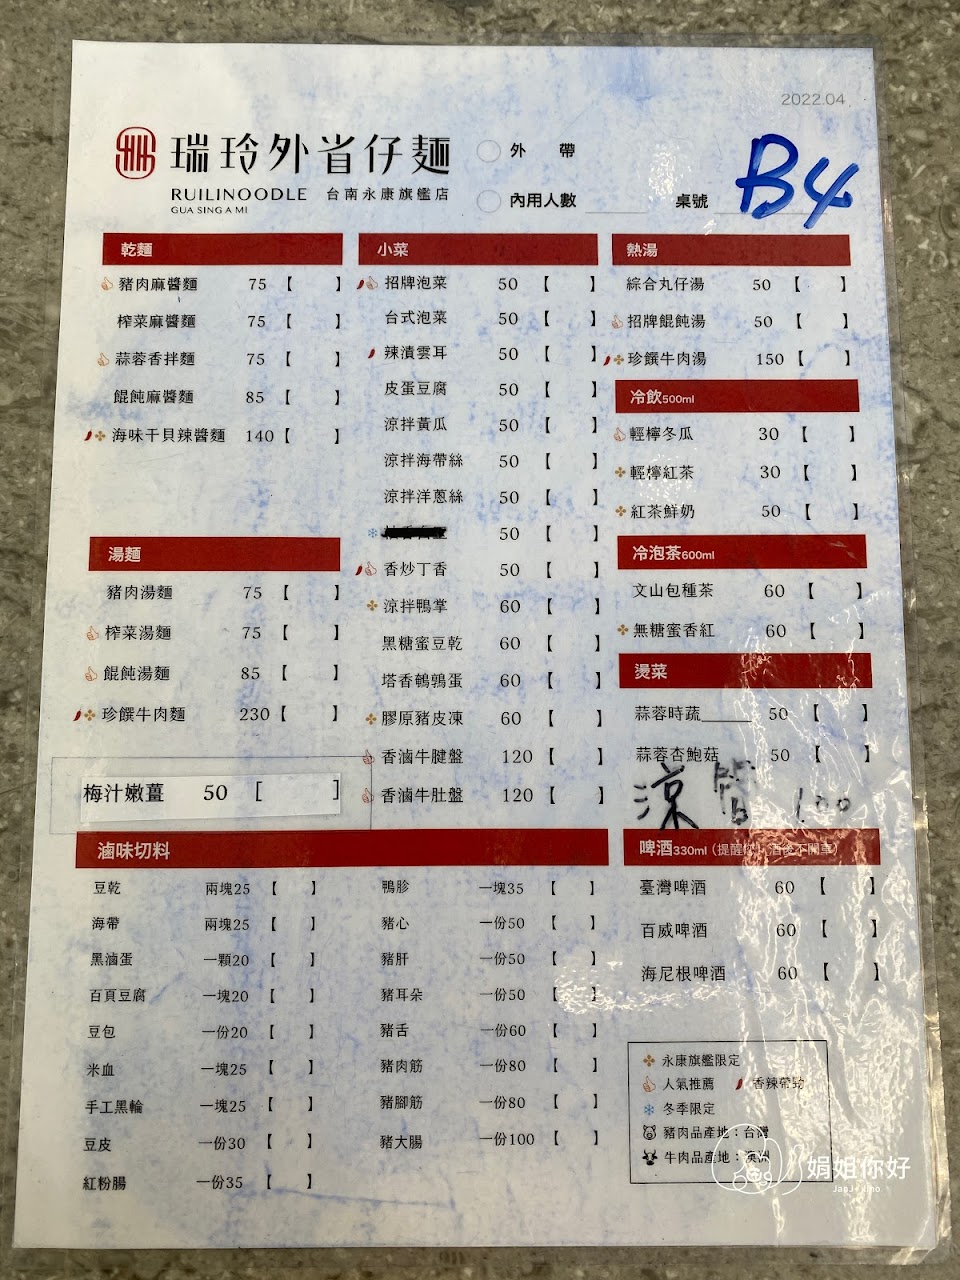 2022.04
瑞玲外省仔麵
RUILINOODLE 台南永康旗艦店
GUA SING A MI
外 帶
內用人數 桌號 B4
乾麵
豬肉麻醬麵 75 【 】
榨菜麻醬麵 75 【 】
蒜蓉香拌麵 75 【 】
餛飩麻醬麵 85 【 】
海味干貝辣醬麵 140 【 】
湯麵
豬肉湯麵 75 【 】
榨菜湯麵 75 【 】
餛飩湯麵 85 【 】
珍饌牛肉麵 230 【 】
梅汁嫩薑 50 [ ]
小菜
招牌泡菜 50 【 】
台式泡菜 50 【 】
辣漬雲耳 50 【 】
皮蛋豆腐 50 【 】
涼拌黃瓜 50 【 】
涼拌海帶絲 50 【 】
涼拌洋蔥絲 50 【 】
50 【 】
香炒丁香 50 【 】
涼拌鴨掌 60 【 】
黑糖蜜豆乾 60 【 】
塔香鵪鶉蛋 60 【 】
膠原豬皮凍 60 【 】
香滷牛腱盤 120 【 】
香滷牛肚盤 120 【 】
熱湯
綜合丸仔湯 50 【 】
招牌餛飩湯 50 【 】
珍饌牛肉湯 150 【 】
冷飲500ml
輕檸冬瓜 30 【 】
輕檸紅茶 30 【 】
紅茶鮮奶 50 【 】
冷泡茶600ml
文山包種茶 60 【 】
無糖蜜香紅 60 【 】
燙菜
蒜蓉時蔬_____ 50 【 】
蒜蓉杏鮑菇 50 【 】
涼筍 100
滷味切料
豆乾 兩塊25 【 】
海帶 兩塊25 【 】
黑滷蛋 一顆20 【 】
百頁豆腐 一塊20 【 】
豆包 一份20 【 】
米血 一塊25 【 】
手工黑輪 一塊25 【 】
豆皮 一份30 【 】
紅粉腸 一份35 【 】
鴨胗 一塊35 【 】
豬心 一份50 【 】
豬肝 一份50 【 】
豬耳朵 一份50 【 】
豬舌 一份60 【 】
豬肉筋 一份80 【 】
豬腳筋 一份80 【 】
豬大腸 一份100 【 】
啤酒330ml（提醒您！酒後不開車）
臺灣啤酒 60 【 】
百威啤酒 60 【 】
海尼根啤酒 60 【 】
永康旗艦限定
人氣推薦 香辣帶勁
冬季限定
豬肉品產地：台灣
牛肉品產地：澳洲
娟姐你好